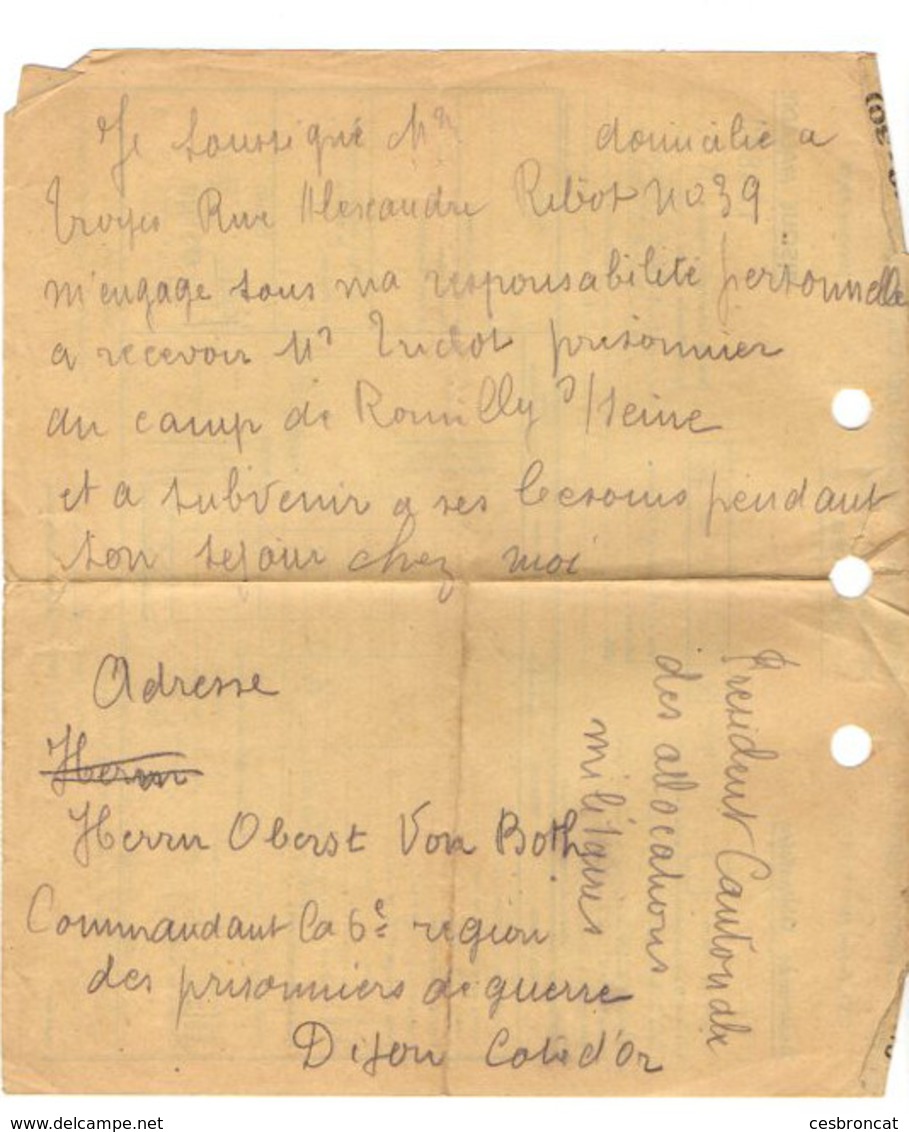 Je soussigné Mr domicilié a
Troyes Rue Alexandre Ribot no 39
m'engage sous ma responsabilité personnelle
a recevoir Mr Tridot prisonnier
du camp de Romilly s/Seine
et a subvenir a ses besoins pendant
son sejour chez moi
Adresse
Herrn
Herrn Oberst Von Both
Commandant la 6e region
des prisonniers de guerre
Dijon Cote d'Or
President Cantonale
des allocations
militaires
www.delcampe.net
cesbroncat